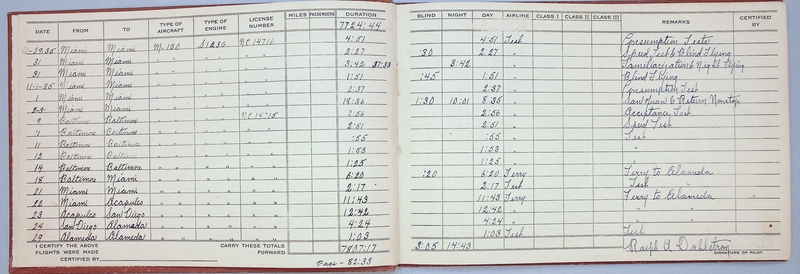 DATE FROM TO TYPE OF AIRCRAFT TYPE OF ENGINE LICENSE NUMBER MILES PASSENGERS DURATION BLIND NIGHT DAY AIRLINE CLASS I CLASS II CLASS III REMARKS CERTIFIED BY
7724:44
10-29-35 Miami Miami M-130 S1830 NC 14716 4:51 4:51 Test Consumption Tests
31 Miami Miami " " " 2:27 :30 2:27 " Speed Test & Blind Flying
31 Miami Miami " " " 3:42 37:33 3:42 " Familiarization & Night Flying
11-1-35 Miami Miami " " " 1:51 :45 1:51 " Blind Flying
1 Miami Miami " " " 2:37 2:37 " Consumption Test
2-3- Miami Miami " " " 18:36 1:30 10:01 8:35 " San Juan & Return Nonstop
9 Baltimore Baltimore " " NC 14715 2:56 2:56 " Acceptance Test
9 Baltimore Baltimore " " " 2:51 2:51 " Speed Test
11 Baltimore Baltimore " " " :55 :55 " Test
12 Baltimore Baltimore " " " 1:53 1:53 " "
14 Baltimore Baltimore " " " 1:25 1:25 " "
18 Baltimore Miami " " " 6:20 :20 6:20 Ferry Ferry to Alameda
21 Miami Miami " " " 2:17 2:17 Test Test "
22 Miami Acapulco " " " 11:43 11:43 Ferry Ferry to Alameda
23 Acapulco San Diego " " " 12:42 12:42 " "
24 San Diego Alameda " " " 4:24 4:24 " "
29 Alameda Alameda " " " 1:03 1:03 Test Test
I CERTIFY THE ABOVE FLIGHTS WERE MADE CARRY THESE TOTALS FORWARD 7807:17 3:05 14:43 Ralph A Dahlstrom
CERTIFIED BY Page - 82:33 SIGNATURE OF PILOT